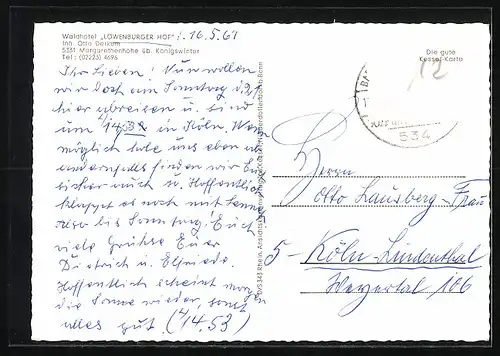 Waldhotel „LÖWENBURGER HOF" 16.5.67
Inh. Otto Derkum
5331 Margarethenhöhe üb. Königswinter
Tel.: (02223) 4696
Ihr Lieben! Nun wollen
wir doch am Sonntag d. 21.
hier abreisen u. sind
um 14 32 in Köln. Wenn
möglich hole uns eben ab
andernfalls finden wir Euch
sicher auch u. hoffentlich
klappt es noch mit
also bis Sonntag! Euch
viele Grüße Euer
Dietrich u. Elfriede.
Hoffentlich scheint morgen
die Sonne wieder, sonst
alles gut (14.53)
Die gute
Kessel-Karte
12
534
Herrn
Otto Lausberg-Frau
5-Köln-Lindenthal
Weyertal 106